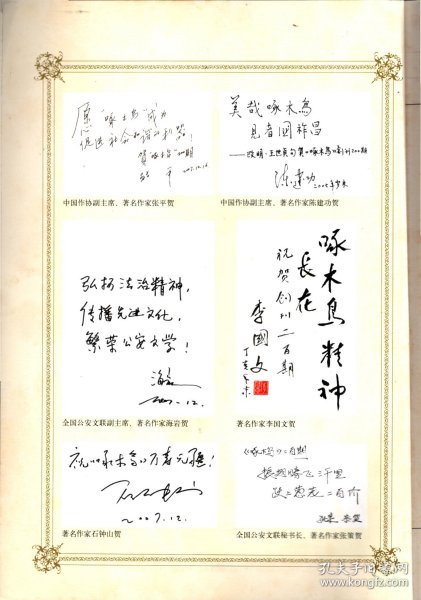 愿“啄木鸟”成为
促进社会和谐的利器！
贺啄木鸟200期
张平
2007.12.16
中国作协副主席、著名作家张平贺
美哉啄木鸟
见者国祚昌
陈建功
中国作协副主席、著名作家陈建功贺
弘扬法治精神，
传播先进文化，
繁荣公安文学！
海岩
2007.12.
全国公安文联副主席、著名作家海岩贺
啄木鸟精神
长在
祝贺创刊二百期
李国文
丁亥年末
著名作家李国文贺
祝《啄木鸟》万寿无疆！
石钟山
2007.12.
著名作家石钟山贺
《啄木鸟》二百期
全国公安文联秘书长、著名作家张策贺
孔夫子旧书网
www.kongfz.com